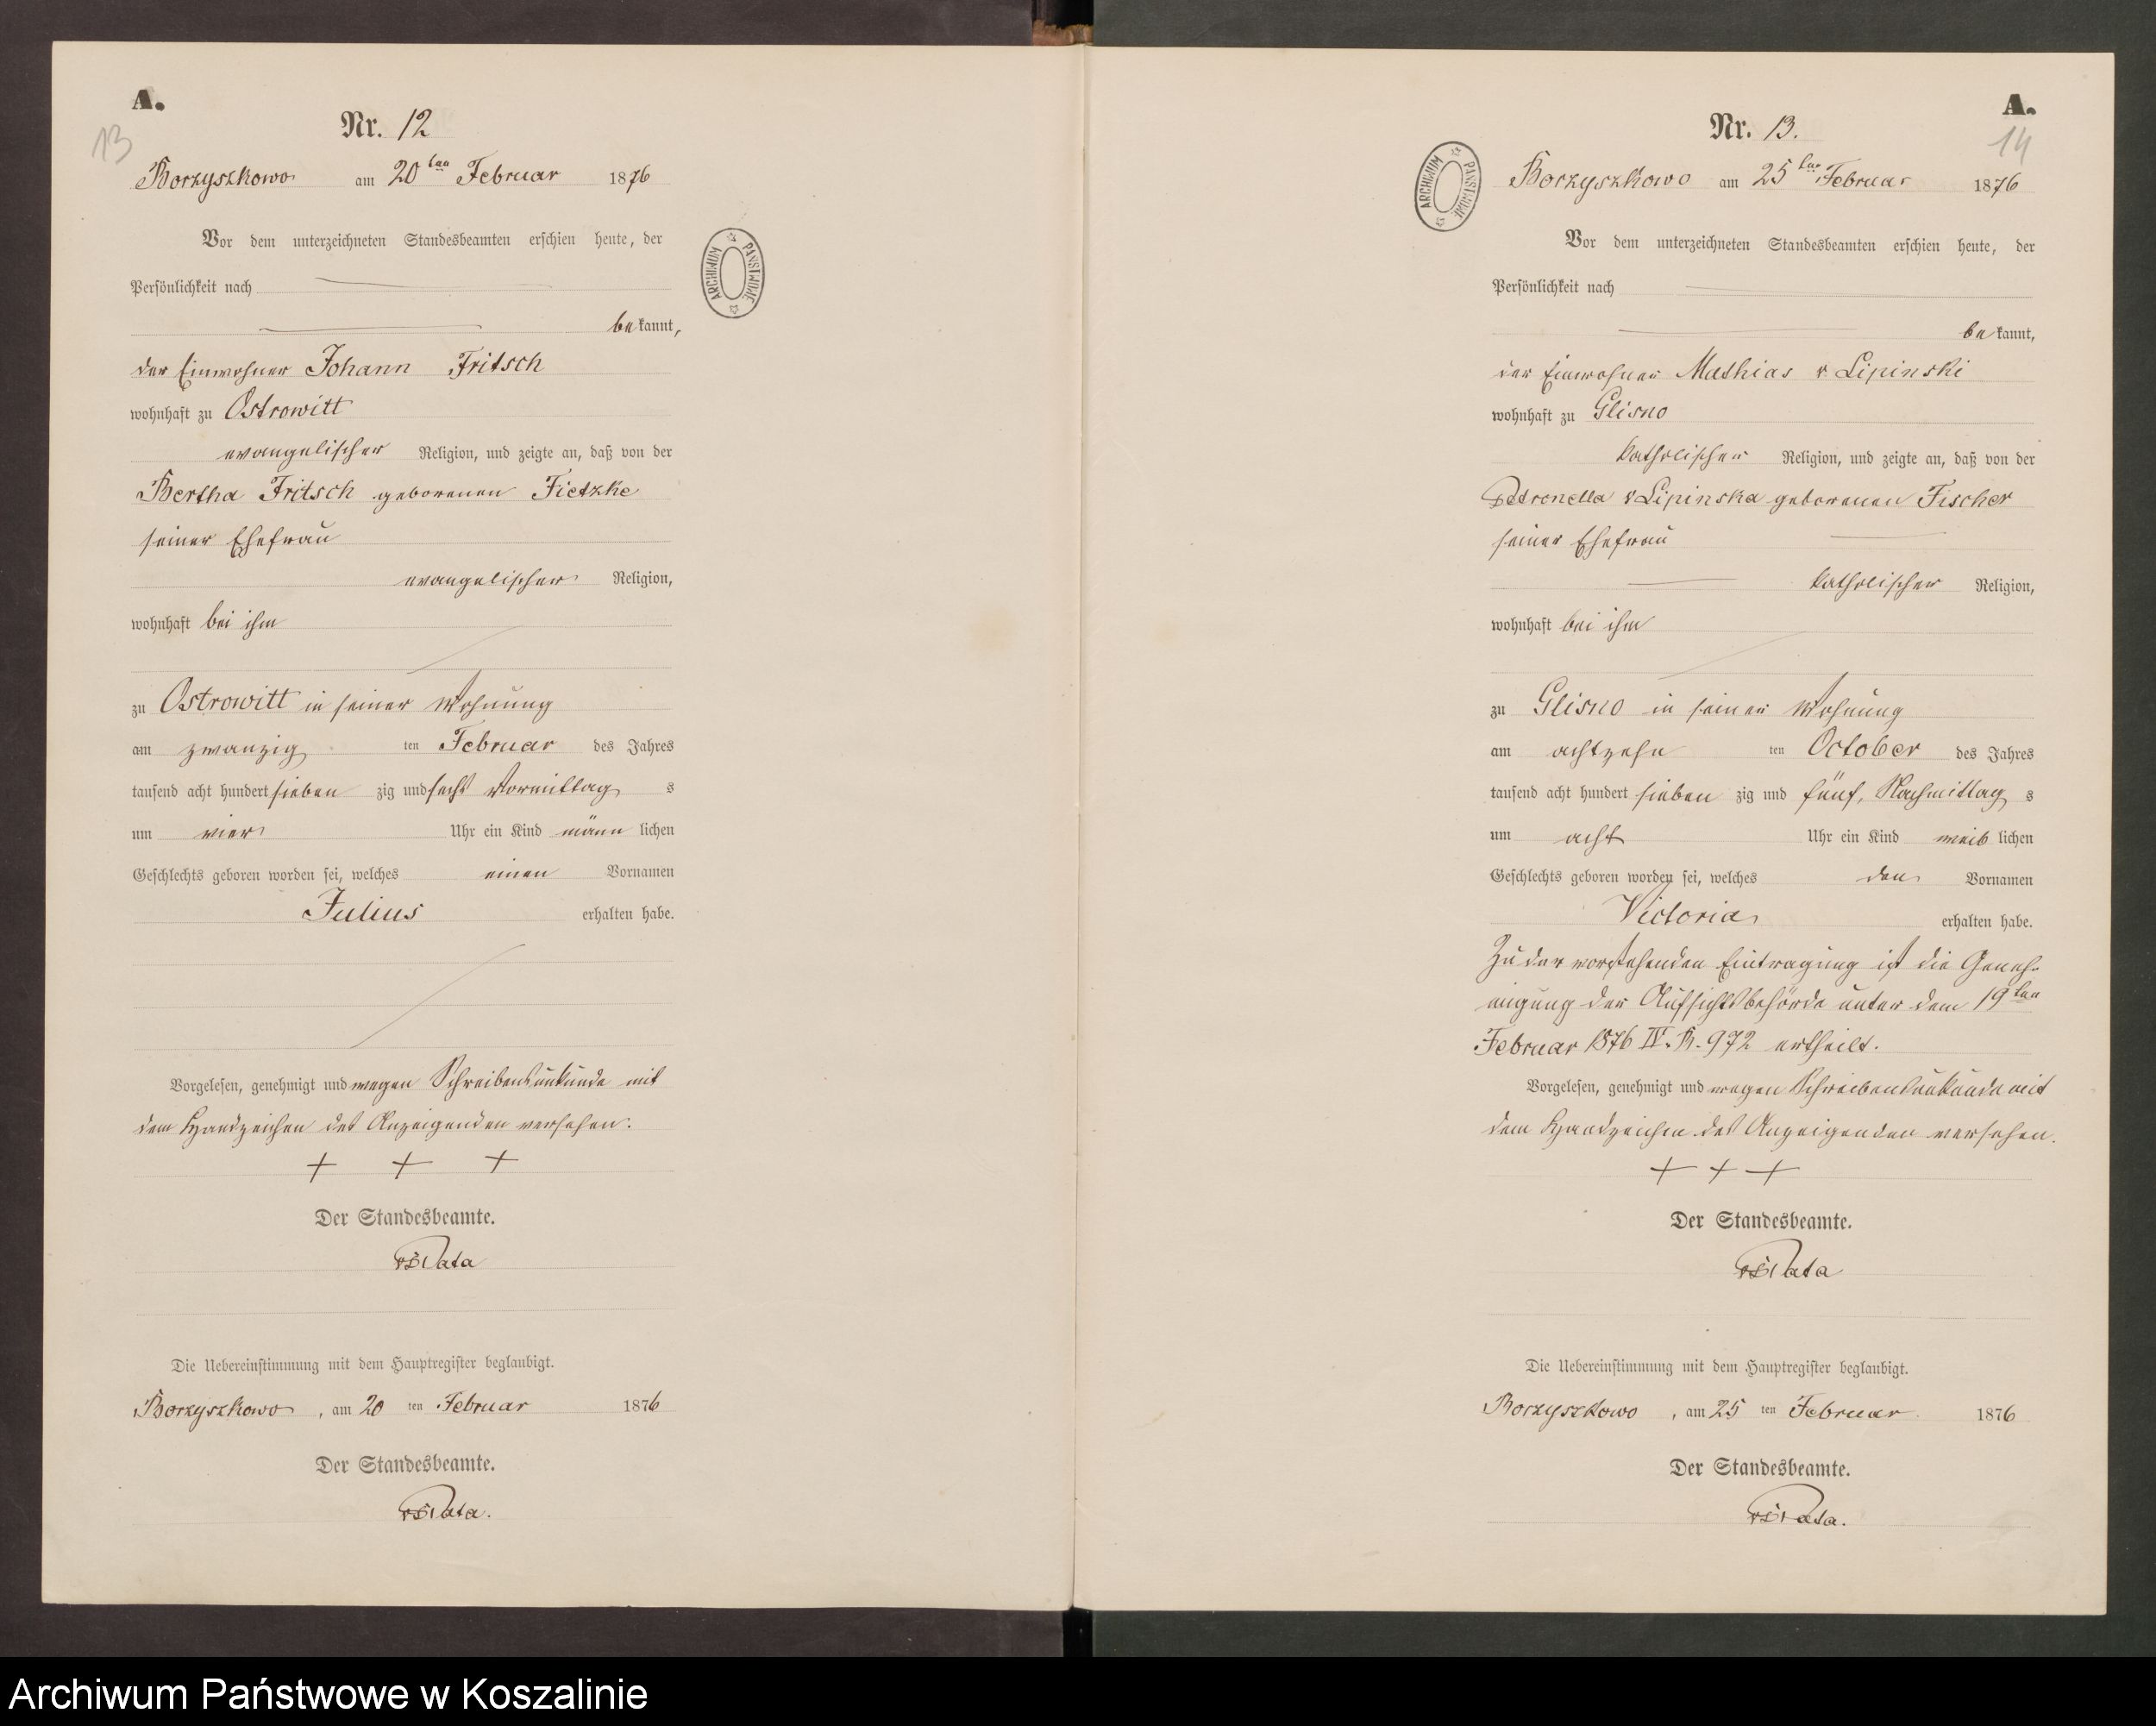 A.
13
Nr. 12
Borzyszkowo am 20ten Februar 1876
Vor dem unterzeichneten Standesbeamten erschien heute, der
Persönlichkeit nach
bekannt,
der Einwohner Johann Fritsch
wohnhaft zu Ostrowitt
evangelischer Religion, und zeigte an, daß von der
Bertha Fritsch geborenen Fietzke
seiner Ehefrau
evangelischer Religion,
wohnhaft bei ihm
zu Ostrowitt in seiner Wohnung
am zwanzig ten Februar des Jahres
tausend acht hundert sieben zig und sechs Vormittag s
um vier Uhr ein Kind männ lichen
Geschlechts geboren worden sei, welches einen Vornamen
Julius erhalten habe.
Vorgelesen, genehmigt und wegen Schreibensunkunde mit
dem Handzeichen des Anzeigenden versehen.
+ + +
Der Standesbeamte.
Die Uebereinstimmung mit dem Hauptregister beglaubigt.
Borzyszkowo, am 20 ten Februar 1876
Der Standesbeamte.
ARCHIWUM PAŃSTWOWE
A.
14
Nr. 13.
Borzyszkowo am 25ten Februar 1876
Vor dem unterzeichneten Standesbeamten erschien heute, der
Persönlichkeit nach
bekannt,
der Einwohner Mathias v Lipinski
wohnhaft zu Glisno
katholischer Religion, und zeigte an, daß von der
Petronella v Lipinska geborenen Fischer
seiner Ehefrau
katholischer Religion,
wohnhaft bei ihm
zu Glisno in seiner Wohnung
am achtzehn ten October des Jahres
tausend acht hundert sieben zig und fünf, Nachmittag s
um acht Uhr ein Kind weib lichen
Geschlechts geboren worden sei, welches den Vornamen
Victoria erhalten habe.
Zu der vorstehenden Eintragung ist die Geneh-
migung der Aufsichtsbehörde unter dem 19ten
Februar 1876 IV. B. 972 ertheilt.
Vorgelesen, genehmigt und wegen Schreibensunkunde mit
dem Handzeichen des Anzeigenden versehen.
+ + +
Der Standesbeamte.
Die Uebereinstimmung mit dem Hauptregister beglaubigt.
Borzyszkowo, am 25 ten Februar 1876
Der Standesbeamte.
ARCHIWUM PAŃSTWOWE
Archiwum Państwowe w Koszalinie